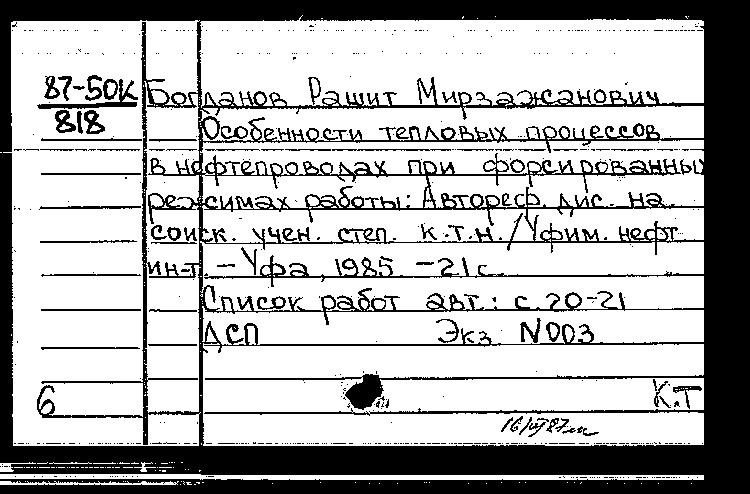 87-50К Богданов, Рашит Мирзажанович
818 Особенности тепловых процессов
в нефтепроводах при форсированных
режимах работы: Автореф. дис. на
соиск. учен. степ. к.т.н. / Уфим. нефт
ин-т. – Уфа, 1985. – 21 с.
Список работ авт.: с. 20-21
ДСП Экз N003
6 К.Т